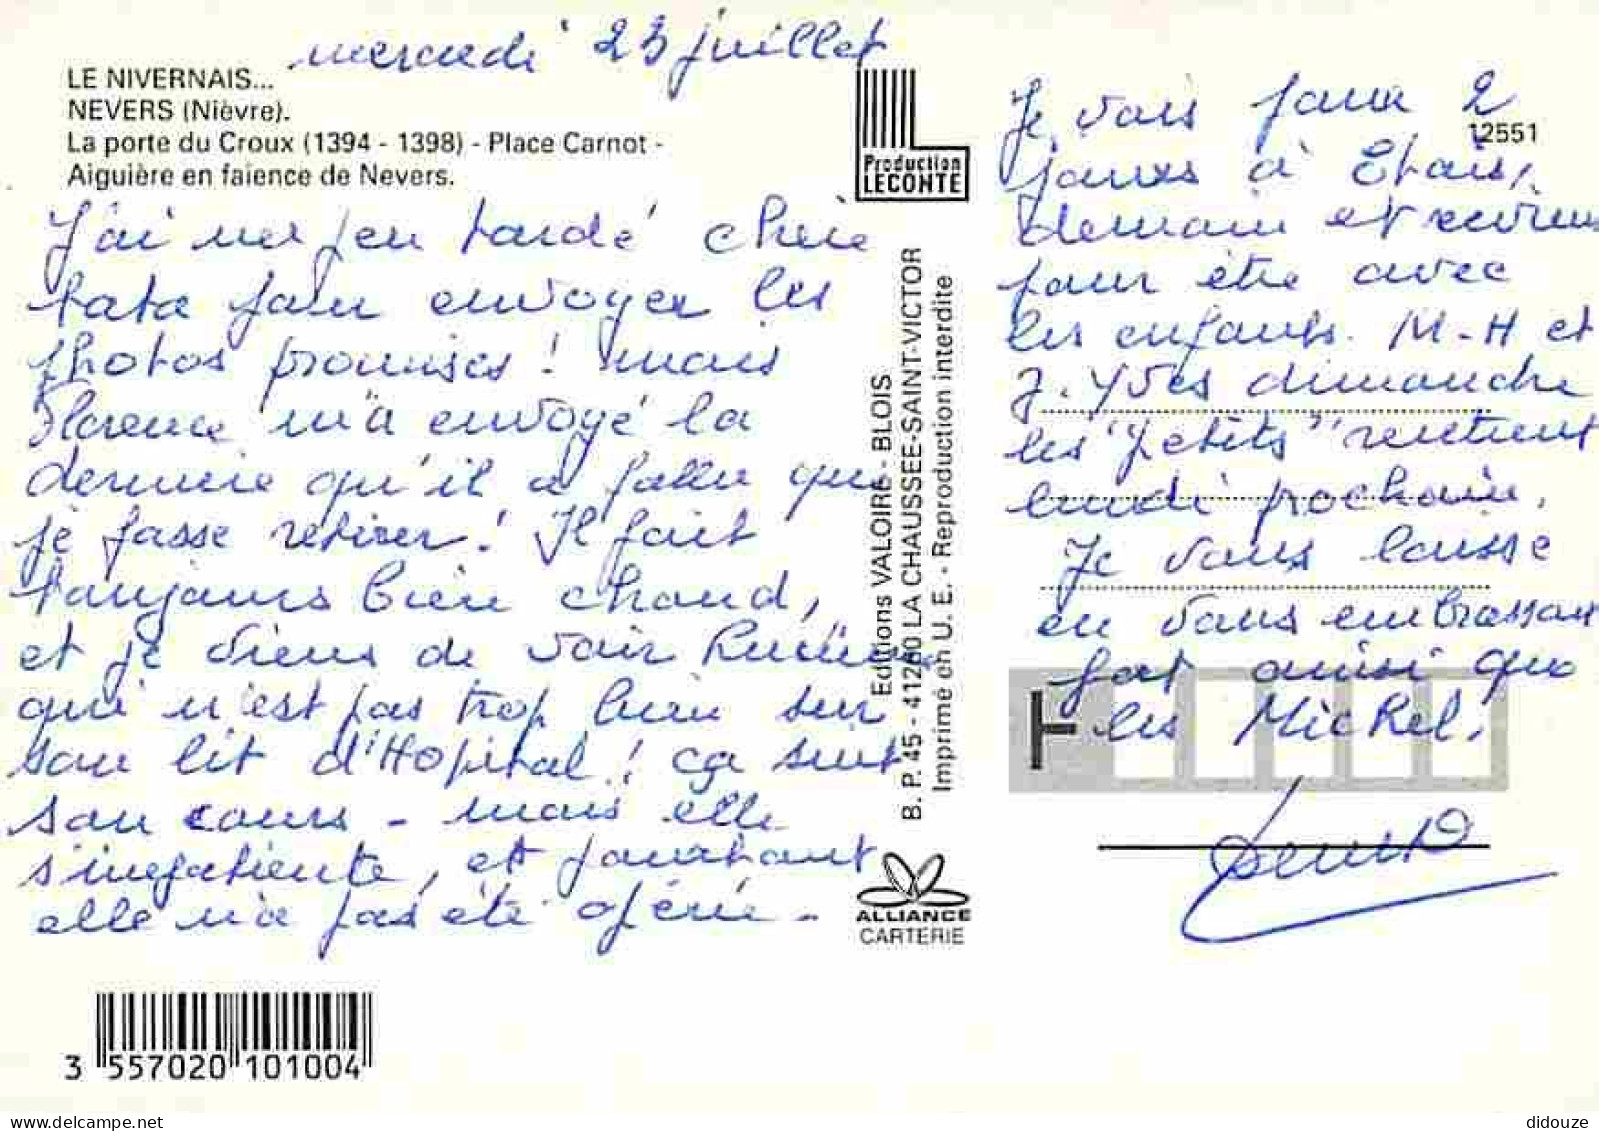 mercredi 23 juillet
LE NIVERNAIS...
NEVERS (Nièvre).
La porte du Croux (1394 - 1398) - Place Carnot -
Aiguière en faïence de Nevers.
J'ai un peu tardé chère
tata pour envoyer les
photos promises ! mais
Florence m'a envoyé la
dernière qu'il a fallu que
je fasse retirer ! Il fait
toujours bien chaud,
et je viens de voir
qui n'est pas trop bien sur
son lit d'Hopital ! ça suit
son cours - mais elle
s'impatiente, et pourtant
elle n'a pas été opérée -
3 557020 101004
Production
LECONTE
Editions VALOIRE - BLOIS
B. P. 45 - 41260 LA CHAUSSEE-SAINT-VICTOR
Imprimé en U. E. - Reproduction interdite
ALLIANCE
CARTERIE
12551
Je vais pour 2
jours à Etais,
demain et reviens
pour être avec
les enfants. M-H et
J. Yves dimanche
les "petits" rentrent
lundi prochain.
Je vous laisse
en vous embrassant
fort ainsi que
les Michel.
didouze